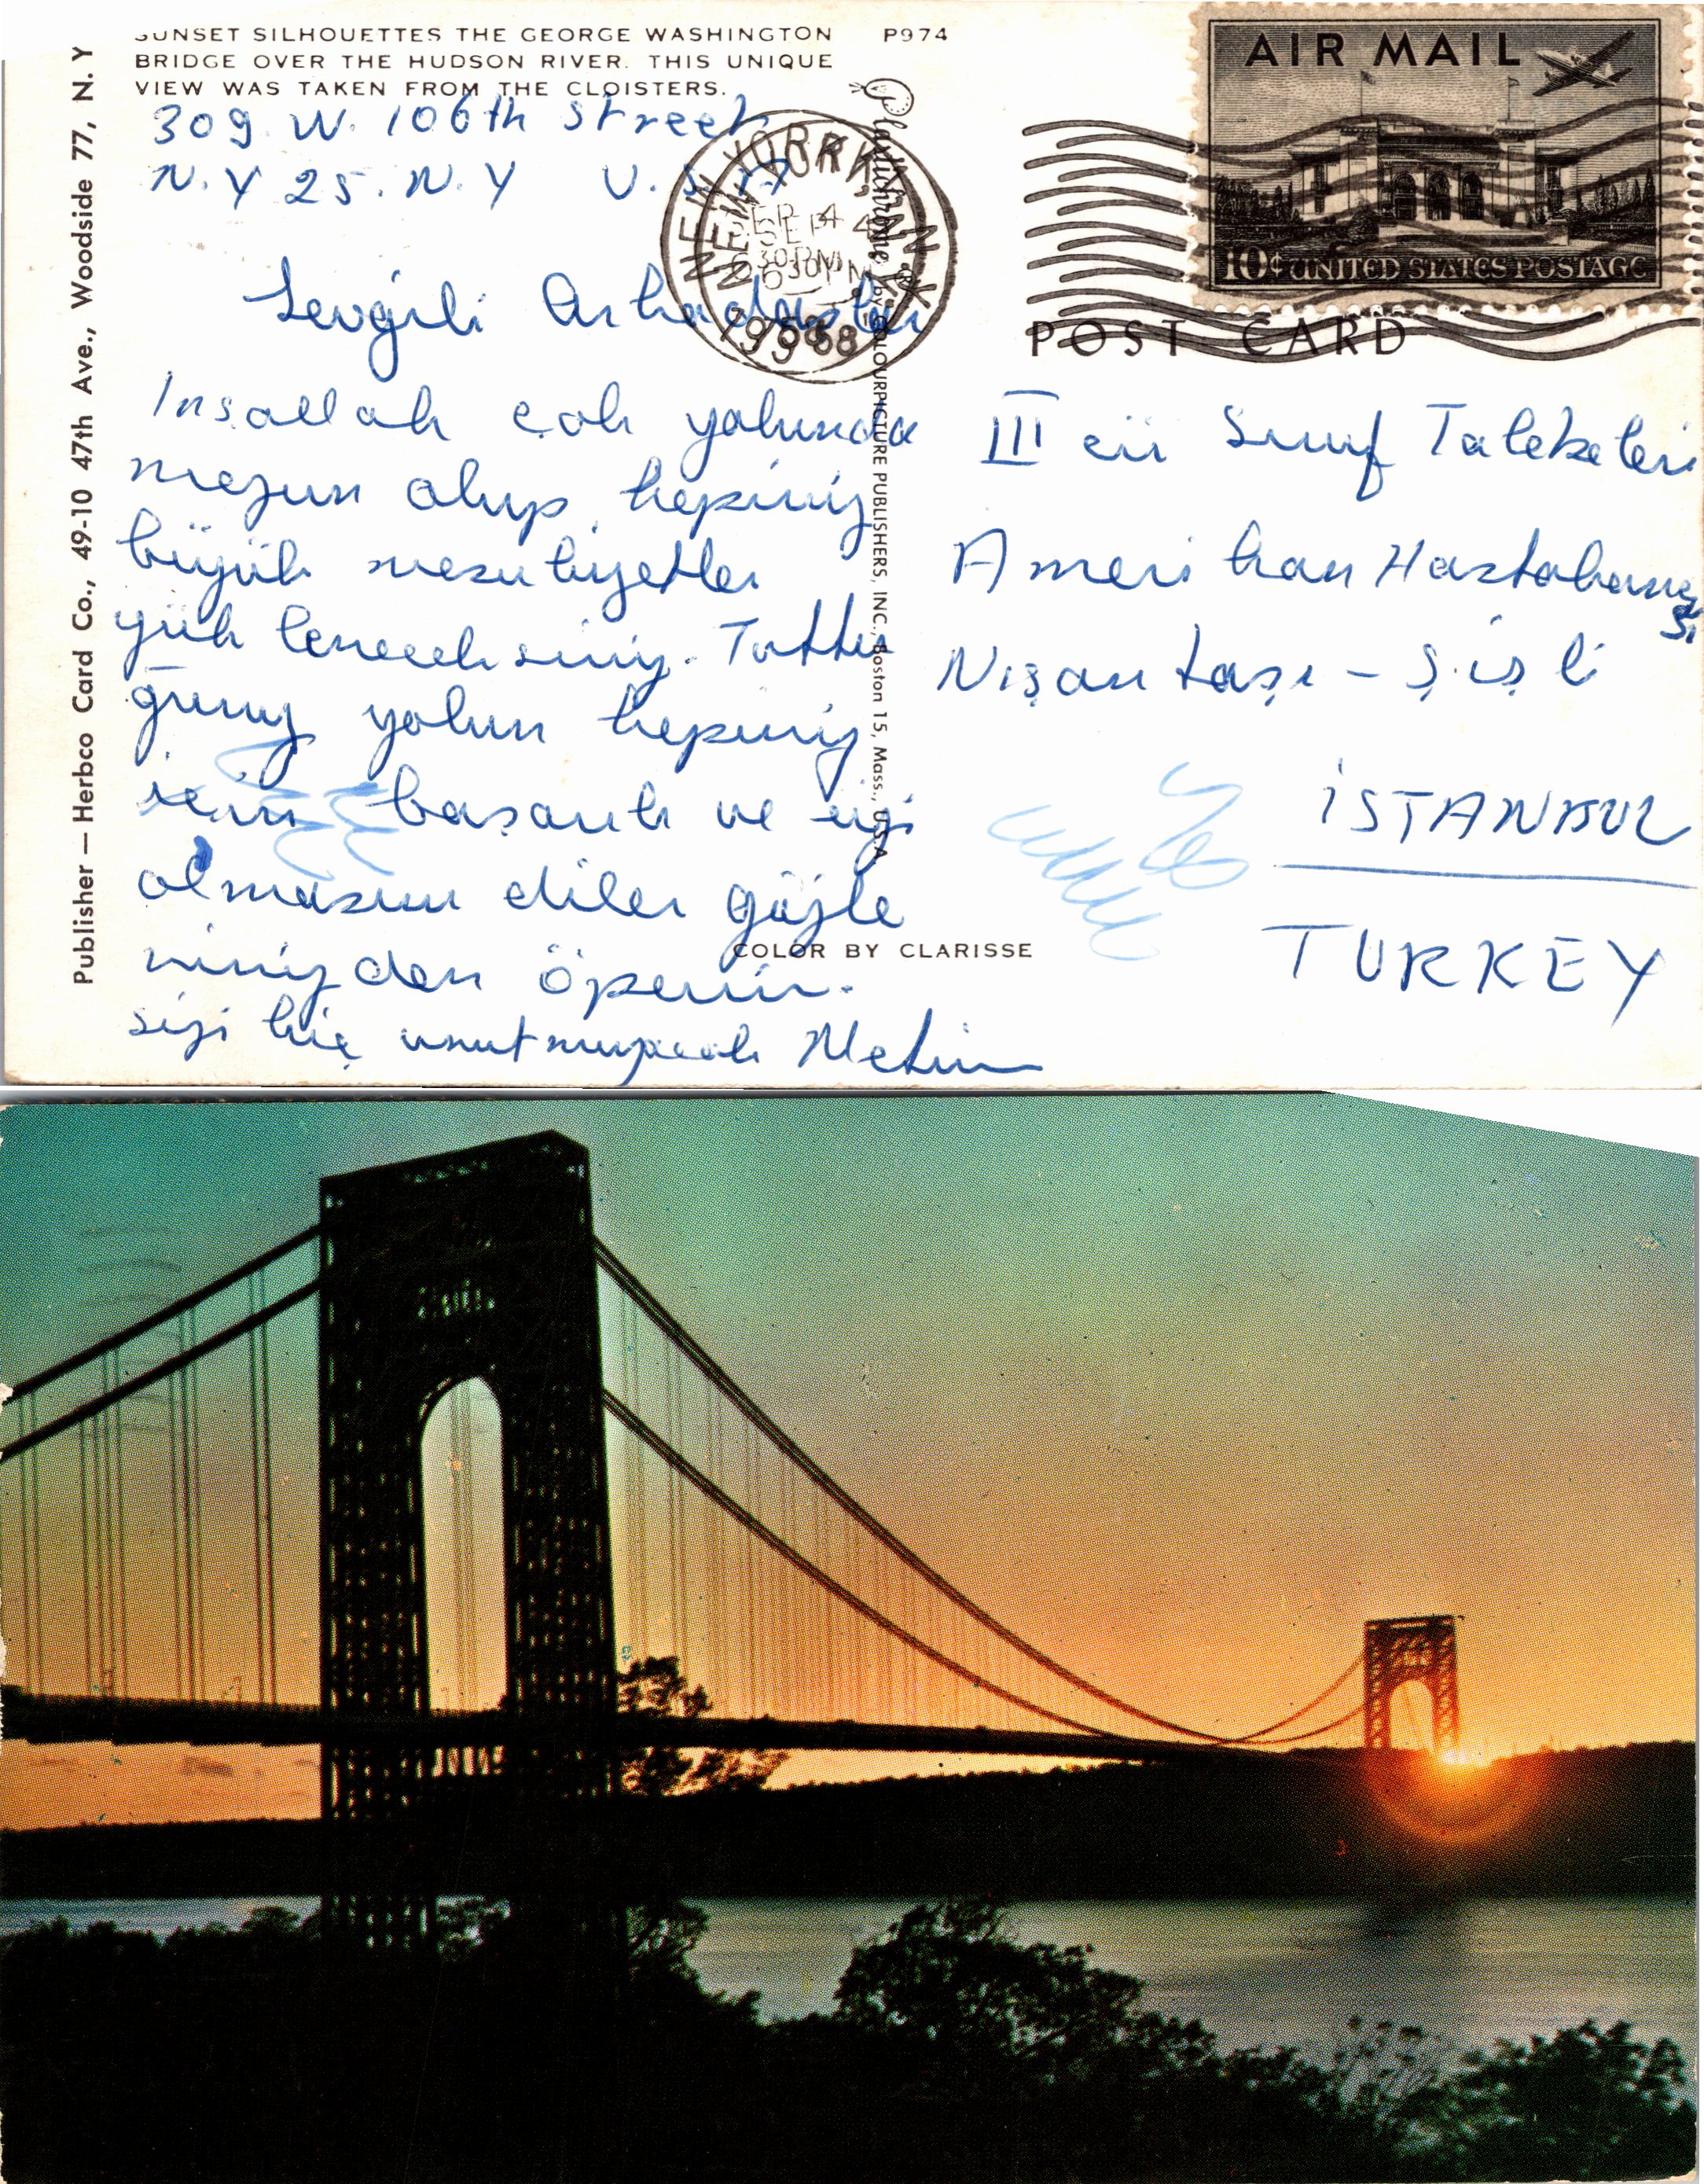 SUNSET SILHOUETTES THE GEORGE WASHINGTON
BRIDGE OVER THE HUDSON RIVER. THIS UNIQUE
VIEW WAS TAKEN FROM THE CLOISTERS.
P974
309 W. 106th Street
N.Y 25. N.Y U.S.A
Sevgili Arkadaşlar
Inşallah çok yakında
mezun olup hepiniz
büyük mesuliyetler
yükleneceksiniz. Tuttu
ğunuz yolun hepiniz
için başarılı ve iyi
olmasını diler gözle
rinizden öperim.
sizi hiç unutmıyacak Metin
Publisher — Herbco Card Co., 49-10 47th Ave., Woodside 77, N. Y
Plastichrome ® by COLOURPICTURE PUBLISHERS, INC., Boston 15, Mass., U.S.A.
COLOR BY CLARISSE
NEW YORK, N.Y.
SEP 4
630 PM
1958
AIR MAIL
10¢ UNITED STATES POSTAGE
POST CARD
III cü Sınıf Talebeleri
Amerikan Hastahane
si
Nişantaşı – Şişli
İSTANBUL
TURKEY